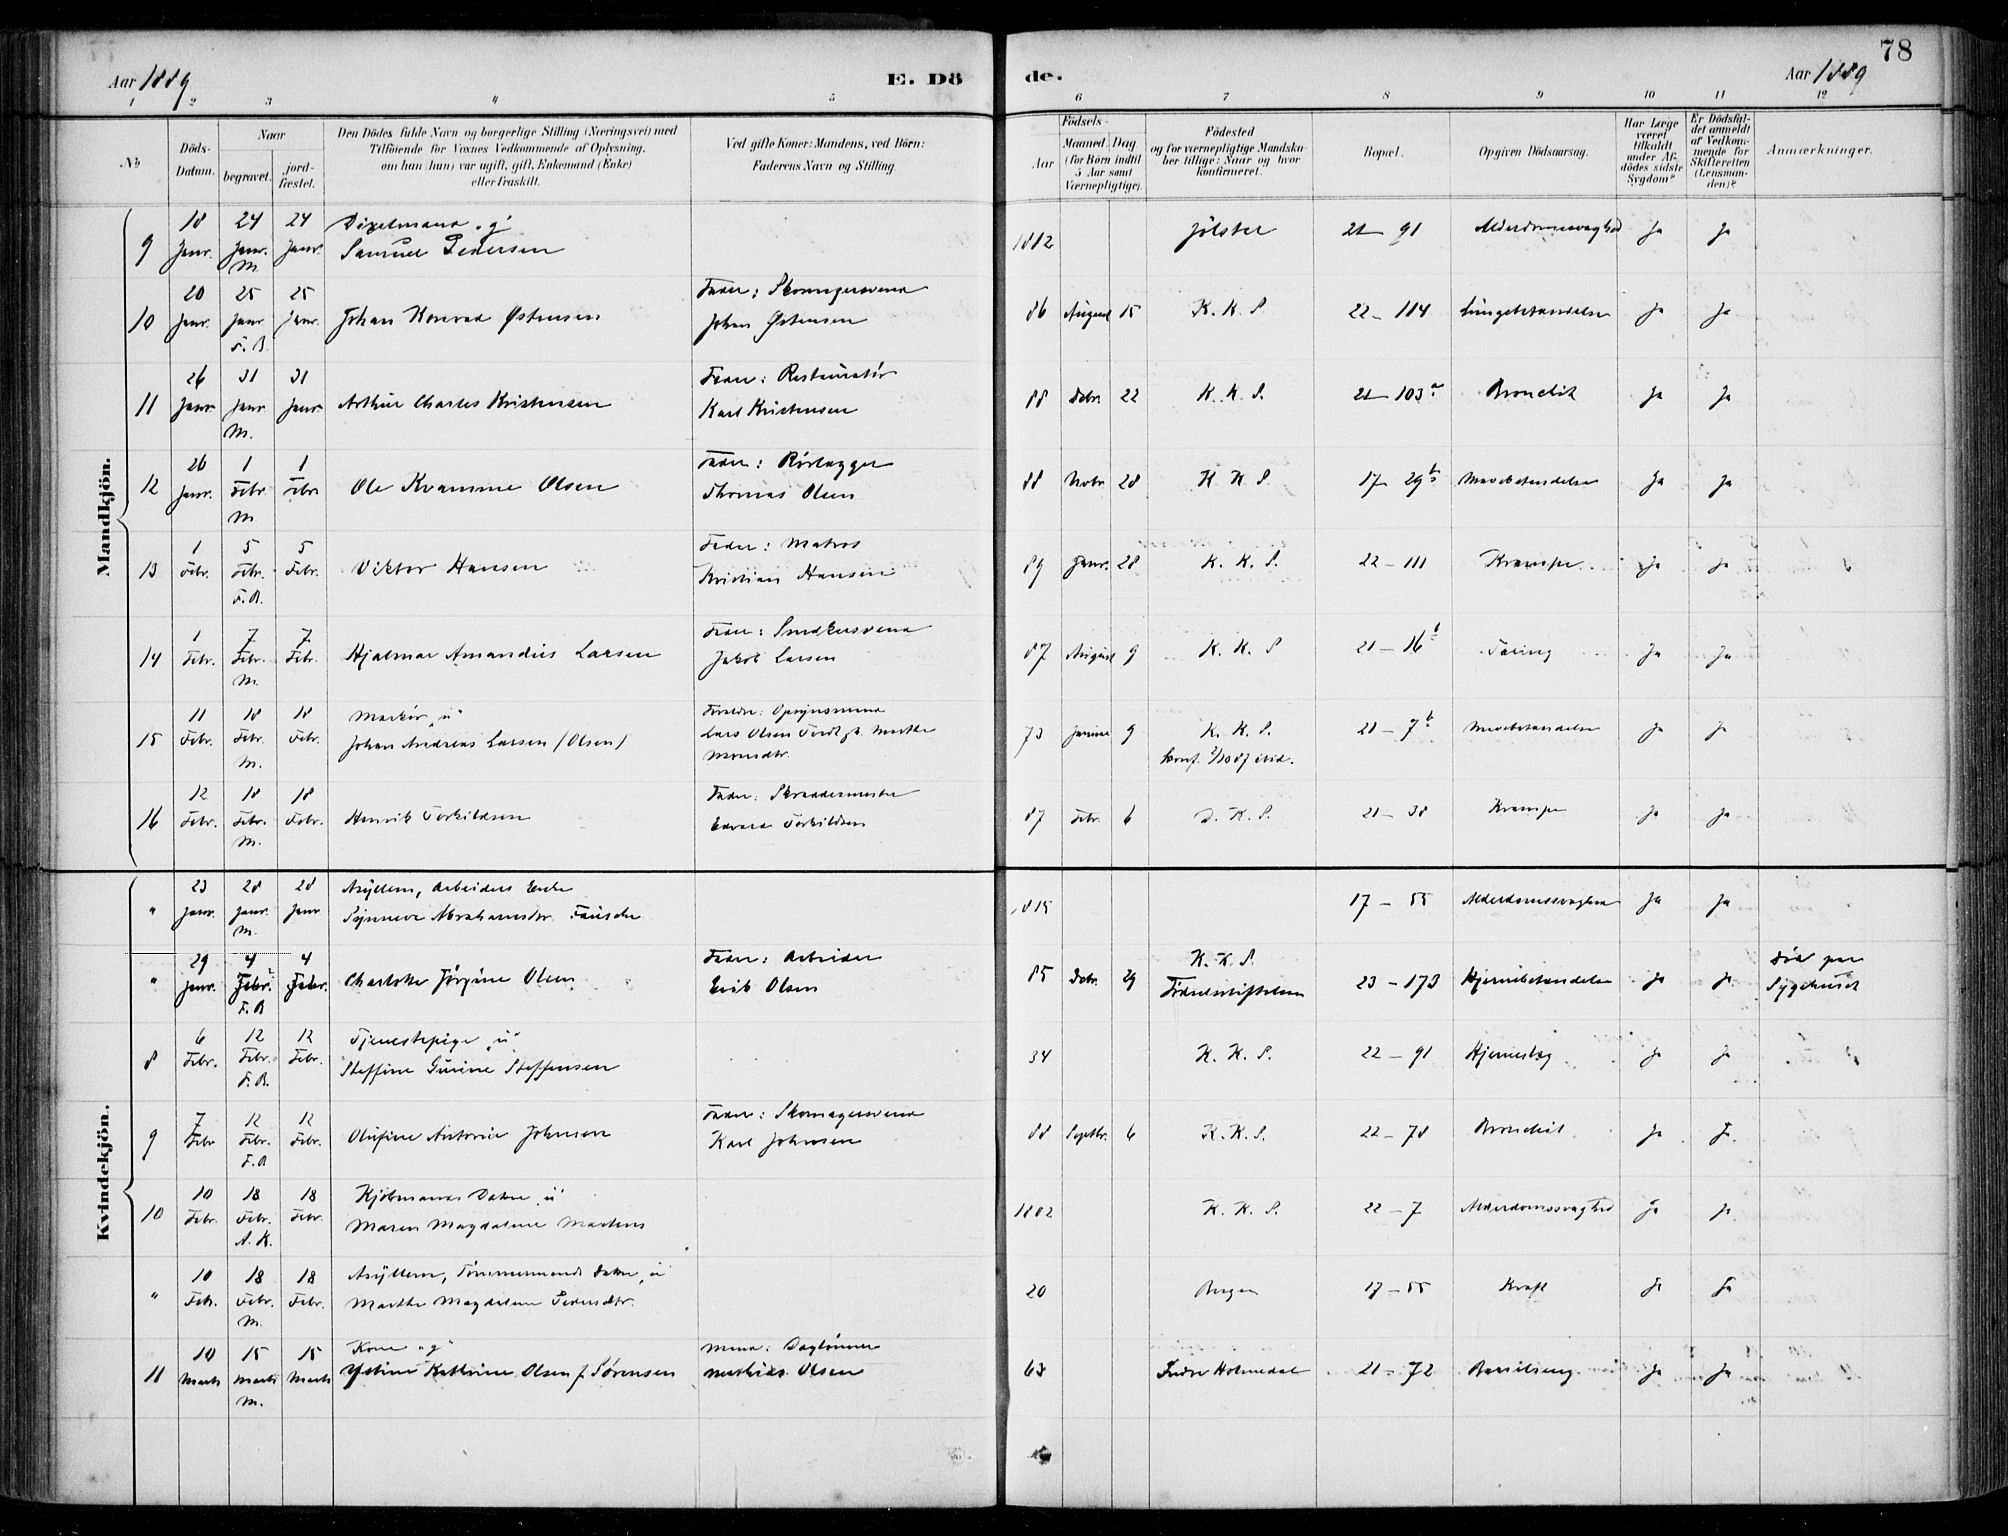 78
Aar 1889
E. Dö
de.
Aar 1889
1 2 3 4 5 6 7 8 9 10 11 12
No
Döds-
Datum.
Naar
begravet.
jord-
fæstet.
Den Dödes fulde Navn og borgerlige Stilling (Næringsvei) med
Tilföiende for Voxnes Vedkommende af Oplysning,
om han (hun) var ugift, gift, Enkemand (Enke)
eller fraskilt.
Ved gifte Koner: Mandens, ved Börn:
Faderens Navn og Stilling.
Födsels-
Aar
Maaned Dag
(for Börn indtil
5 Aar samt
Værnepligtige).
Födested
og for værnepligtige Mandska-
ber tillige: Naar og hvor
konfirmeret.
Bopæl.
Opgiven Dödsaarsag.
Har Læge
været
tilkaldt
under Af-
dödes sidste
Sygdom?
Er Dödsfal-
det anmeldt
af Vedkom-
mende for
Skifteretten
(Lensman-
den)?
Anmærkninger.
Mandkjön.
9 18 Janr. 24 Janr. M. 24 Janr.
Samuel Pedersen
1812 Jølster 21 91 Alderdomssvaghed Ja Ja
10 20 Janr. 25 Janr F. B. 25 Janr.
Johan Konrad Østensen
Fader: Skomagersvend
Johan Østensen
86 August 15 K. K. S 22 - 114 Lungebetændelse Ja Ja
11 26 Janr. 31 Janr M. 31 Janr
Arthur Charles Kristensen
Fader: Restauratør
Karl Kristensen
88 Debr. 22 K. K. S. 21 - 103 a Bronchit Ja Ja
12 26 Janr. 1 Febr M 1 Febr
Ole Kvamme Olsen
Fader: Rørlægger
Thomas Olsen
88 Novbr. 28 K K S 17 29 b Mavebetændelse Ja Ja
13 1 Febr. 5 Febr. F. B. 5 Febr.
Viktor Hansen
Fader: Matros
Kristian Hansen
89 Janr. 28 K. K. S. 22 - 111 Krampe Ja Ja
14 1 Febr. 7 Febr. M. 7 Febr.
Hjalmar Amandus Larsen
Fader: Snedkersvend
Jakob Larsen
87 August 9 K. K. S 21 - 16 b Tæring Ja Ja
15 11 Febr. 18 Febr. M. 18 Febr.
Markør "u"
Johan Andreas Larsen (Olsen)
Forældre: Opsynsmand
Lars Olsen Martha
Monsdtr.
73 Januar 9 K. K. S.
konf. 2/10 87 ibid.
21 - 7 b Mavebetændelse Ja Ja
16 12 Febr. 18 Febr. M. 18 Febr.
Henrik Torkildsen
Fader: Skræddermester
Edvard Torkildsen
87 Febr. 6 D. K. S. 21 - 38 Krampe Ja Ja
Kvindekjön.
" 23 Janr. 28 Janr. M. 28 Janr
Asyllem, Arbeiders Enke
Synneve Abrahamsdtr.
1815 17 - 55 Alderdomssvaghed Ja Ja
" 29 Janr. 4 Febr. F. B 4 Febr.
Charlotte Jørgine Olsen
Fader: Arbeider
Erik Olsen
85 Debr. 29 K. K. S.
Fødselsstiftelsen
23 - 173 Hjernebetændelse Ja Ja
Død paa
Sygehuset
8 6 Febr. 12 Febr. F. B. 12 Febr.
Tjenestepige "u"
Steffine Gurine Steffensen
34 K. K. S. 22 - 91 Hjerneslag Ja Ja
9 7 Febr 12 Febr. F. B 12 Febr.
Olufine Antonie Johnsen
Fader: Skomagersvend
Karl Johnsen
88 Septbr. 6 K. K. S. 22 - 78 Bronchit Ja Ja
10 10 Febr. 18 Febr. A. K. 18 Febr.
Kjøbmands Datter "u"
Maren Magdalene Martens
1802 K. K. S. 22 - 7 Alderdomssvaghed Ja Ja
" 10 Febr. 18 Febr. M. 18 Febr.
Asyllem, Tømmermands Datter "u"
Marthe Magdalene Pedersdtr.
20 Bergen 17 - 55 Kræft Ja Ja
11 10 Marts 15 Marts M. 15 Marts
Kone "g"
Kathrine Olsen f. Sørensen
Mand: Daglønner
Mathias Olsen
63 Indre Holmedal 21 - 72 Barselseng Ja Ja